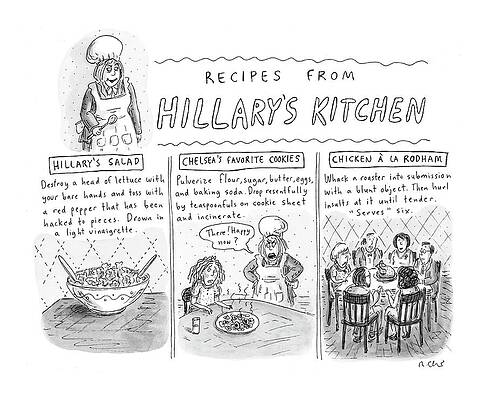 RECIPES FROM
HILLARY'S KITCHEN
HILLARY'S SALAD
Destroy a head of lettuce with
your bare hands and toss with
a red pepper that has been
hacked to pieces. Drown in
a light vinaigrette.
CHELSEA'S FAVORITE COOKIES
Pulverize flour, sugar, butter, eggs,
and baking soda. Drop resentfully
by teaspoonfuls on cookie sheet
and incinerate.
There! Happy
now?
CHICKEN À LA RODHAM
Whack a roaster into submission
with a blunt object. Then hurl
insults at it until tender.
"Serves" six.
R. Chst